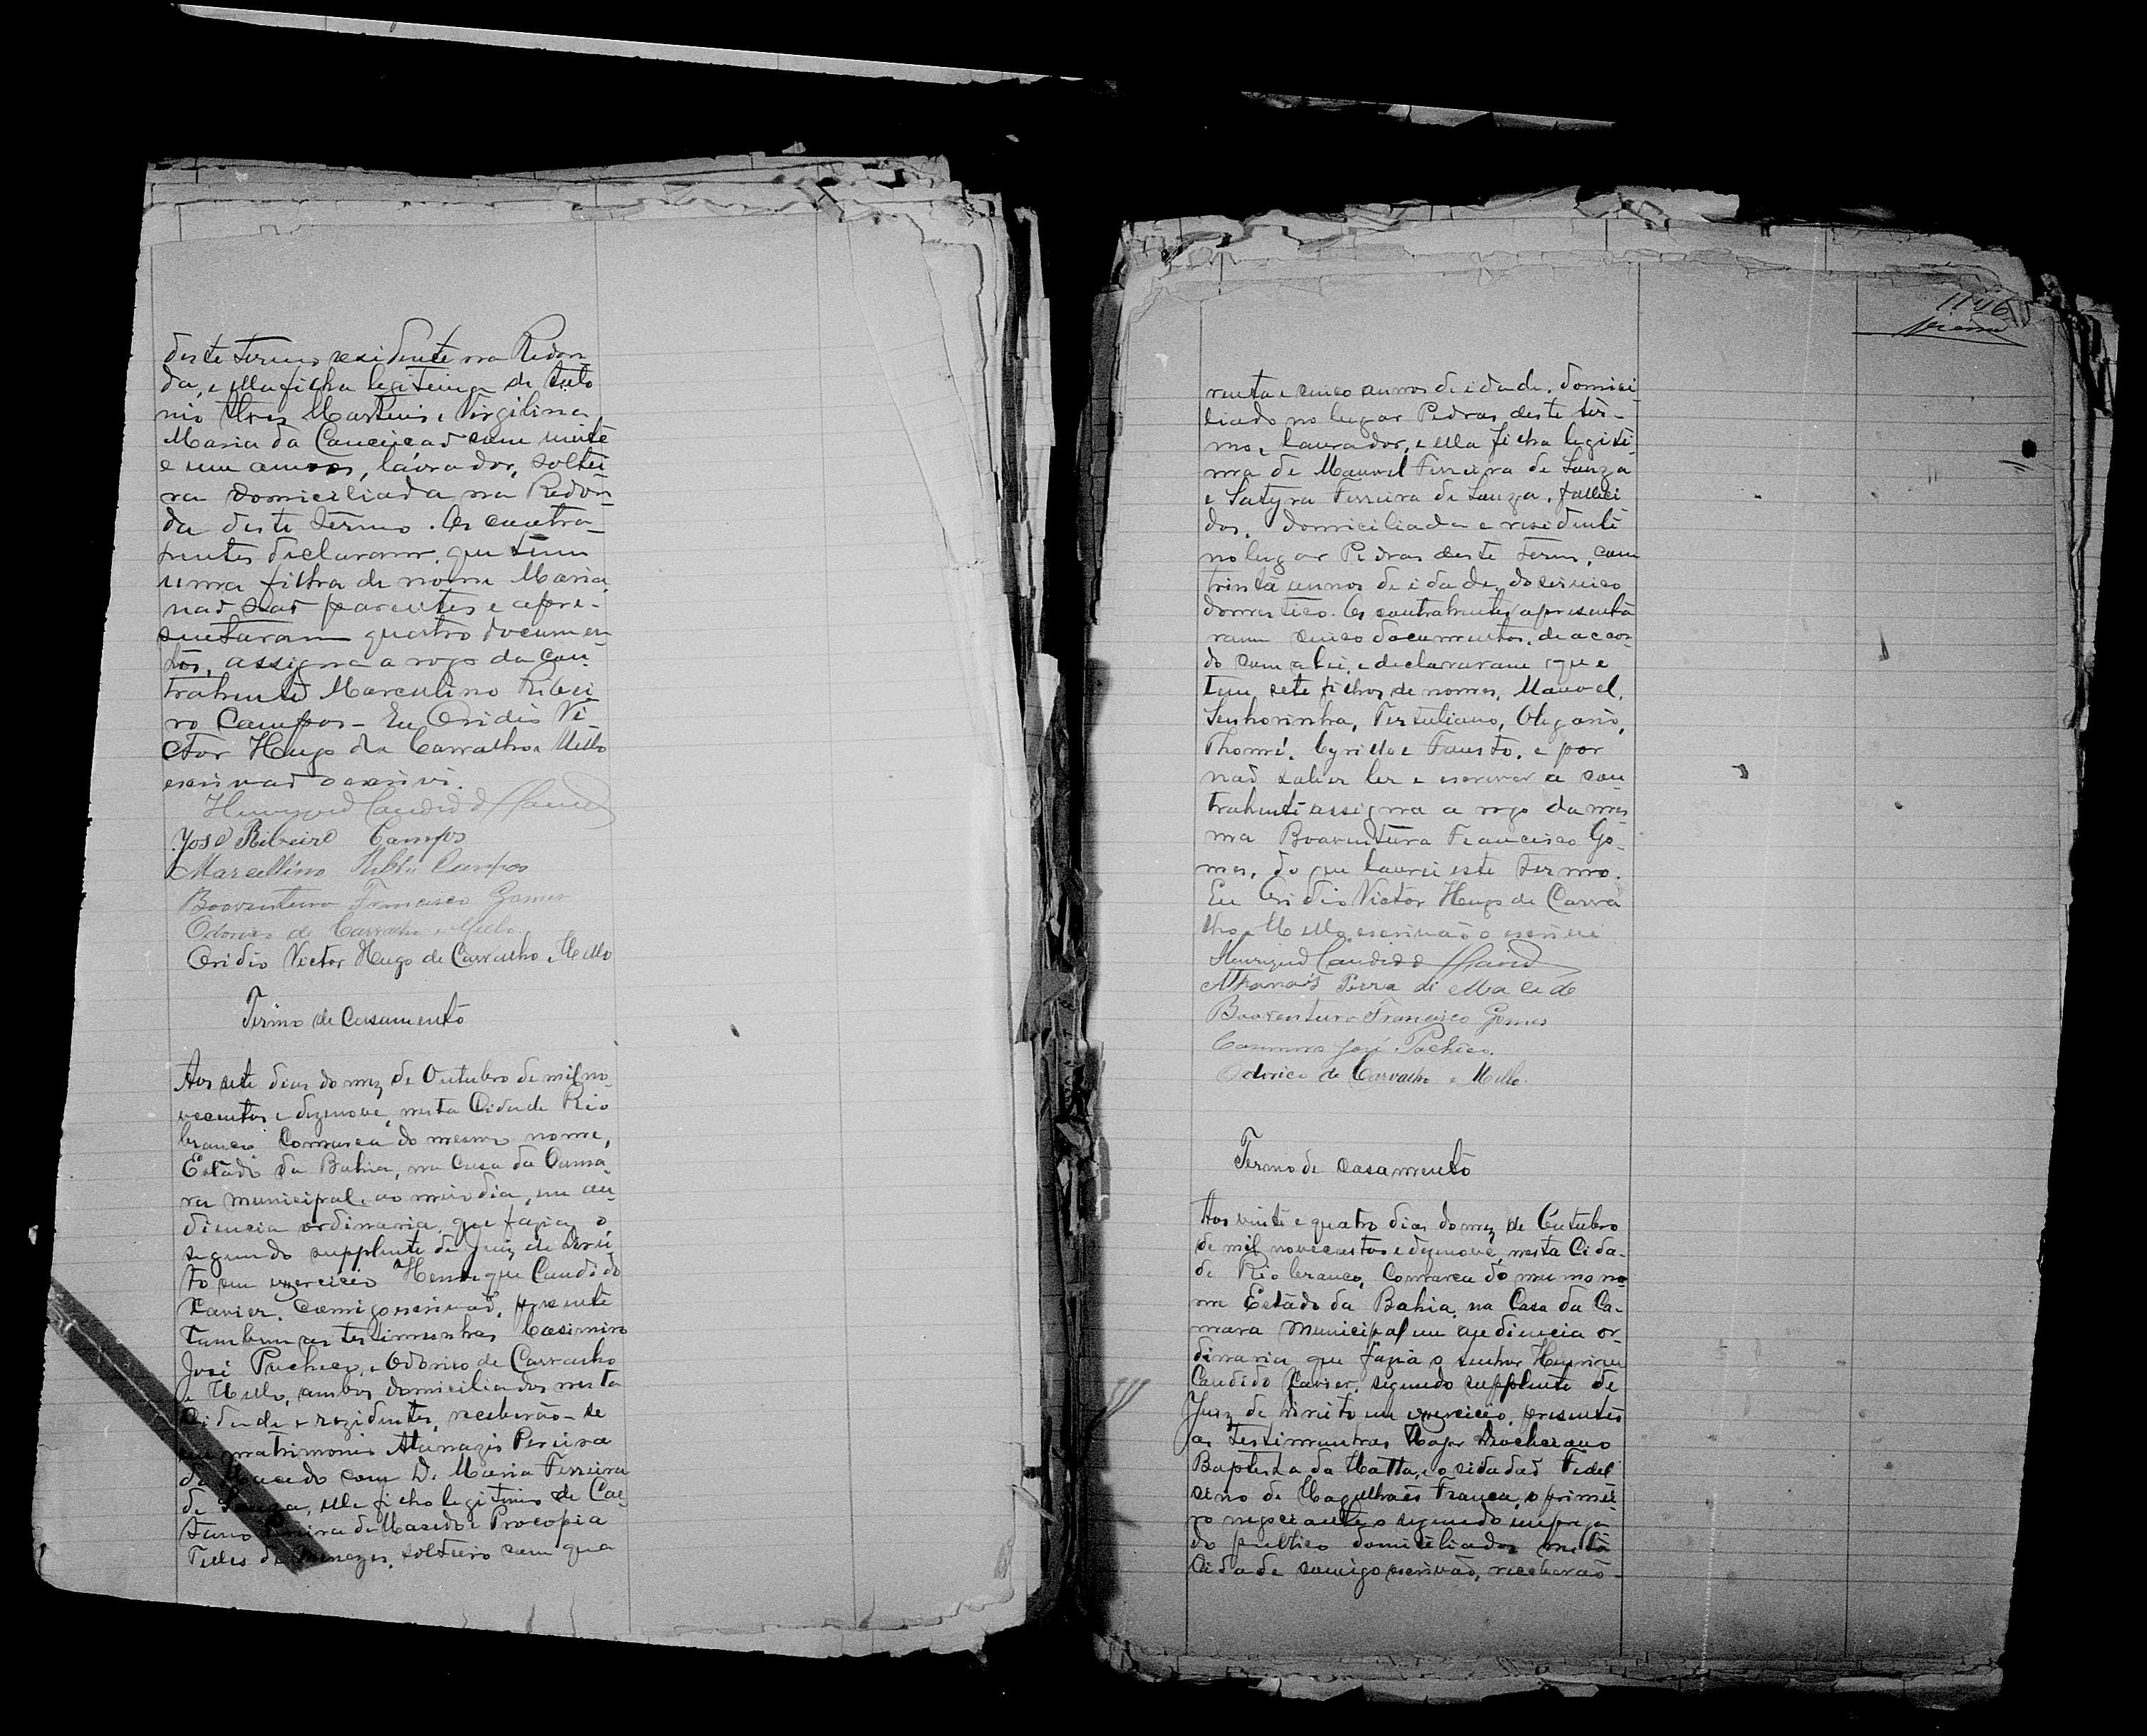 deste termo residente na Redon
da, e ella filha legitima de
nio Alves Martins e Virgilina
Maria da Conceicao com vinte
e um annos, lavrador, soltei
ra domiciliada na Redon
da deste termo. Os contra
hentes declararam que tem
uma filha de nome Maria,
nao sao parentes e apre-
sentaram quatro documen
tos, assigna a rogo da con
trahente Marculino Ribei
ro Campos - Eu Oridio Vi-
ctor Hugo de Carvalho e Mello
escrivao o escrivi.
Henrique Candido Xavier
José Ribeiro Campos
Marcellino Campos
Boaventura Francisco Gomes
Odorico de Carvalho e Mello
Oridio Victor Hugo de Carvalho e Mello
Termo de Casamento
Aos sete dias do mez de Outubro de mil no-
vecentos e dezenove, nesta Cidade Rio
branco Comarca do mesmo nome,
Estado da Bahia, na Casa da Cama-
ra Municipal, ao meio dia, em au-
diencia ordinaria que fazia o
segundo supplente de Juiz de Direi-
to em exercicio Henrique Candido
Xavier. Comigo escrivao, presente
tambem as testimunhas Casimiro
José Pacheco, e Odorico de Carvalho
e Mello, ambos domiciliados nesta
Cidade e rezidentes, receberão-se
em matrimonio Atanazio Pereira
de Macedo com D. Maria Ferreira
de Souza, elle filho legitimo de Cae-
tano Pereira de Macedo e Procopia
Telles de Menezes, solteiro com qua
1146
renta e cinco annos de idade, domici
liado no lugar Pedras deste ter-
mo, lavrador, e ella filha legiti-
ma de Manoel Ferreira de Souza
e Satyra Ferreira de Souza, falleci
dos, domiciliada e residente
no lugar Pedras deste termo, com
trinta annos de idade, do servico
domestico. Os contrahentes apresenta
ram cinco documentos, de accor
do com a lei, e declararam que
tem sete filhos de nomes, Manoel,
Senhorinha, Tertuliano, Olegario,
Thomé, Cyrillo e Fausto, e por
nao saber ler e escrever a con
trahente assigna a rogo da mes
ma Boaventura Francisco Go-
mes, do que lavrei este termo.
Eu Oridio Victor Hugo de Carva
lho e Mello escrivão o escrivi
Henrique Candido Xavier
Athanasio Pereira de Macedo
Boaventura Francisco Gomes
Casimiro José Pacheco.
Odorico de Carvalho e Mello.
Termo de Casamento
Aos vinte e quatro dias do mez de Outubro
de mil novecentos e dezenove, nesta Cida-
de Rio branco, Comarca do mesmo no
me Estado da Bahia, na Casa da Ca-
mara Municipal em audiencia or-
dinaria que fazia o senhor Henrique
Candido Xavier, segundo supplente de
Juiz de Direito em exercicio, presentes
as testimunhas Major Deocleciano
Baptista da Matta, e o cidadao Fidel
cino de Magalhaes Franca, o primei
ro negociante o segundo emprega
do publico domiciliados nesta
Cidade comigo escrivão, receberão-